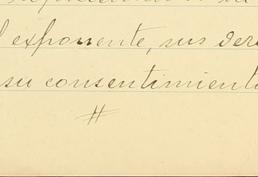 l exponente, sus der
su consentimiento
#